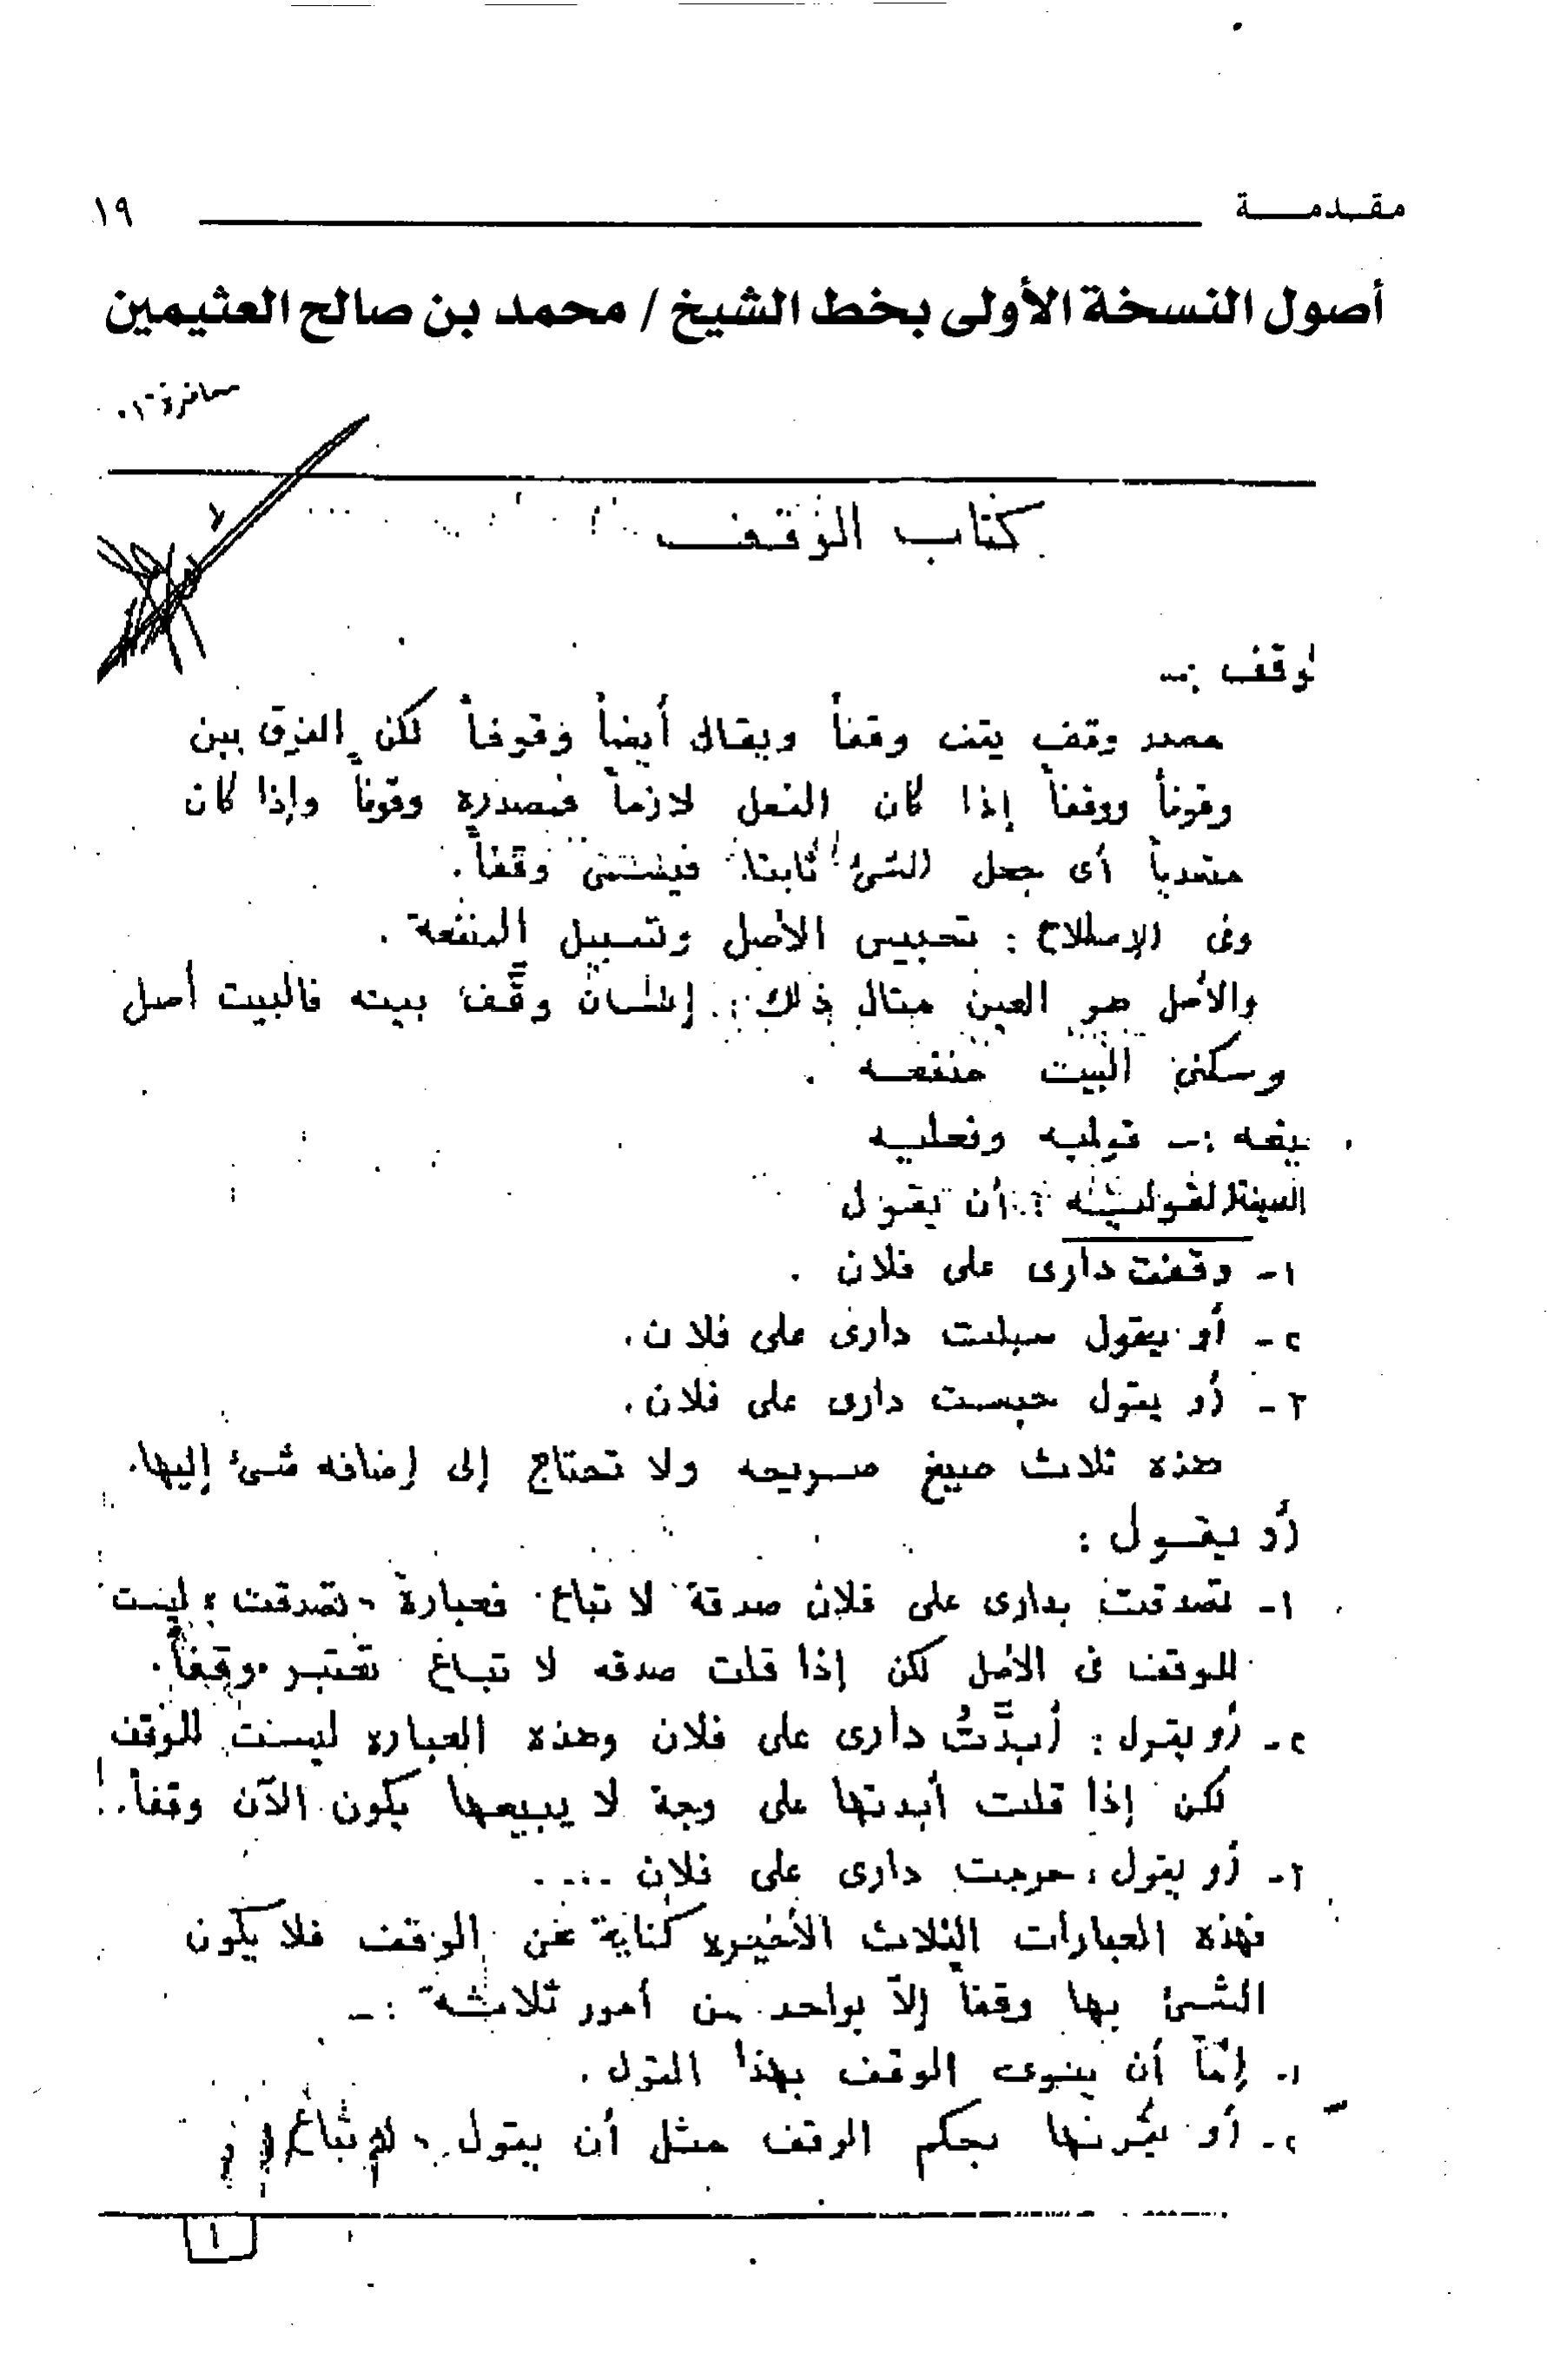 مقدمة
١٩
أصول النسخة الأولى بخط الشيخ / محمد بن صالح العثيمين
كتاب الوقف
لوقف :ـ
مصدر وقف يقف وقفاً ويقال أيضاً وقوفاً لكن الفرق بين
وقوفاً ووقفاً إذا كان الفعل لازماً فمصدره وقوفاً وإذا كان
متعدياً أى جعل الشئ ثابتا فيسمى وقفاً .
وفى الإصطلاح : تحبيس الأصل وتسبيل المنفعة .
والأصل هو العين مثال ذلك : إنسان وقَّف بيته فالبيت أصل
وسكنى البيت منفعه .
يغه :ـ قوليه وفعليه
الصيغة القوليه : أن يقول
١ـ وقفت دارى على فلان .
٢ـ أو يقول سبلت دارى على فلان .
٣ـ أو يقول حبست دارى على فلان .
هذه ثلاث صيغ صريحه ولا تحتاج إلى إضافه شئ إليها .
أو يقول :
١ـ تصدقت بدارى على فلان صدقة لا تباع فعبارة « تصدقت » ليست
للوقف فى الأصل لكن إذا قلت صدقه لا تباع تعتبر وقفاً .
٢ـ أو يقول : أبَّدْتُ دارى على فلان وهذه العباره ليست للوقف
لكن إذا قلت أبدتها على وجة لا يبيعها يكون الآن وقفاً .
٣ـ أو يقول : حرمت دارى على فلان ....
فهذه العبارات الثلاث الأخيره كناية عن الوقف فلا يكون
الشئ بها وقفاً إلاّ بواحد من أمور ثلاثة :ـ
١ـ إمّا أن ينوى الوقف بهذا القول .
٢ـ أو يقرنها بحكم الوقف مثل أن يقول تباع
١